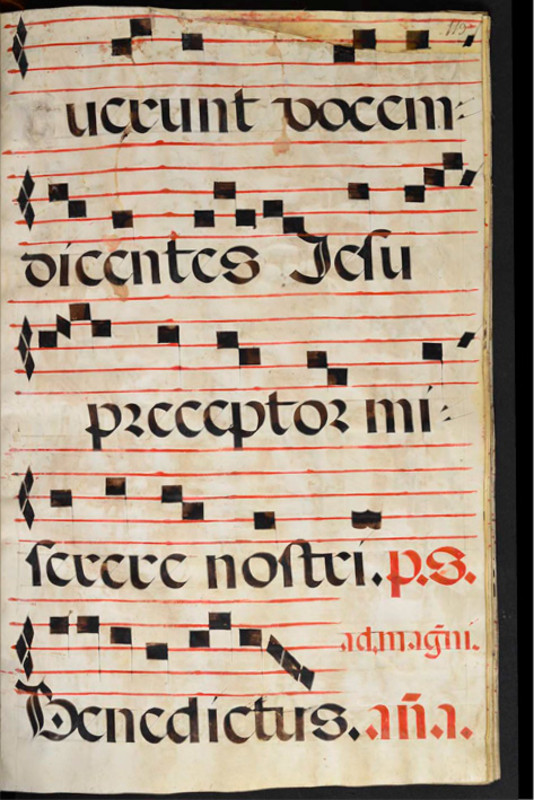 119
uerunt vocem:
dicentes Jesu
preceptor mi:
serere nostri. p.s.
ad.magñi.
Benedictus. aña.